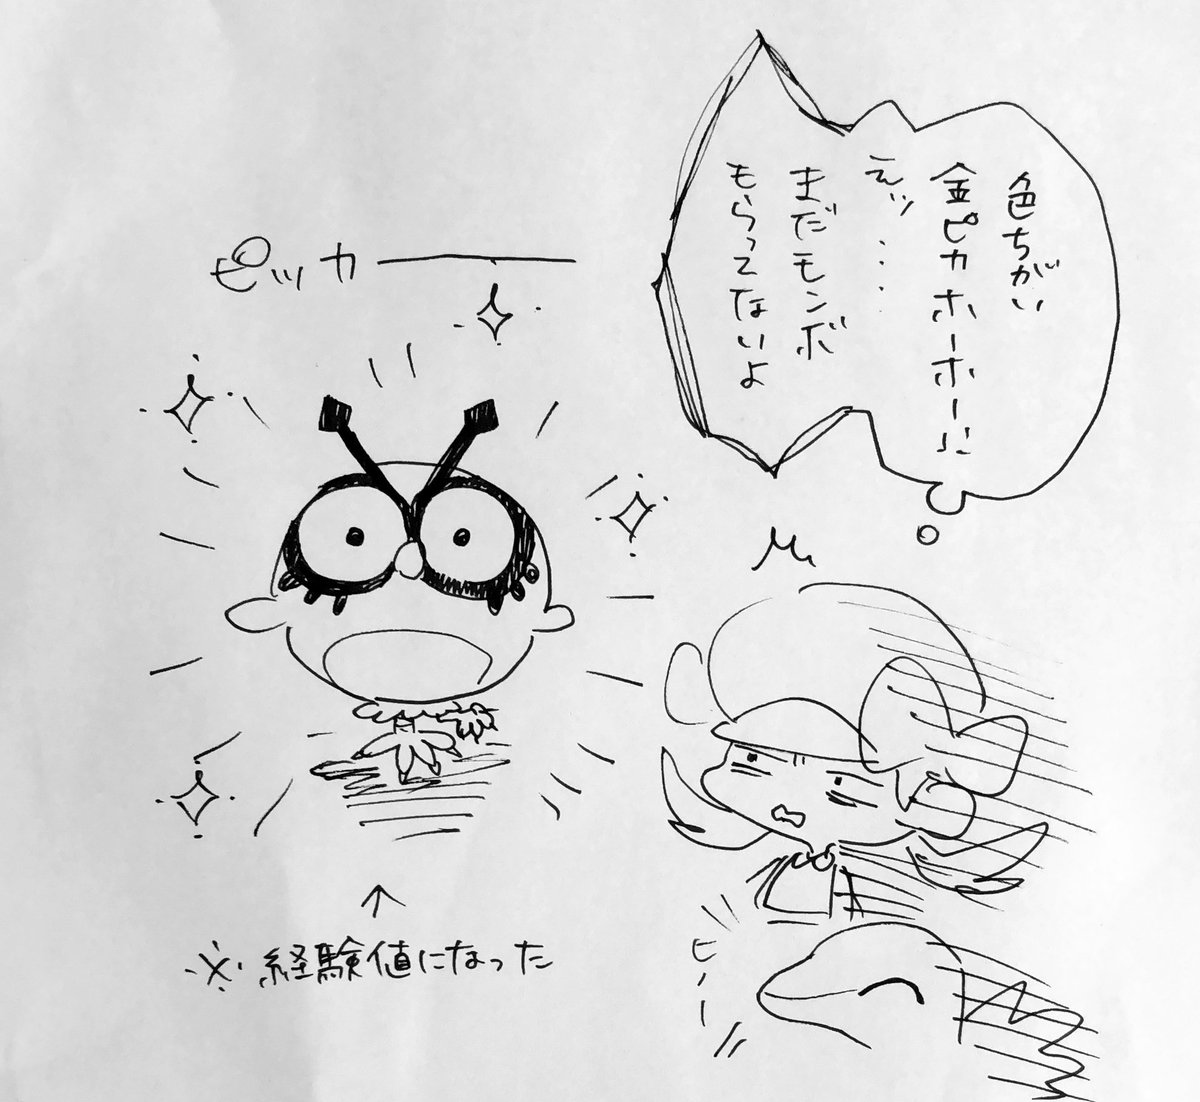 色ちがい
金ピカホーホー!!
えッ....
まだモンボ
もらってないよ
ピッカ――
ヒノー
↑
※経験値になった